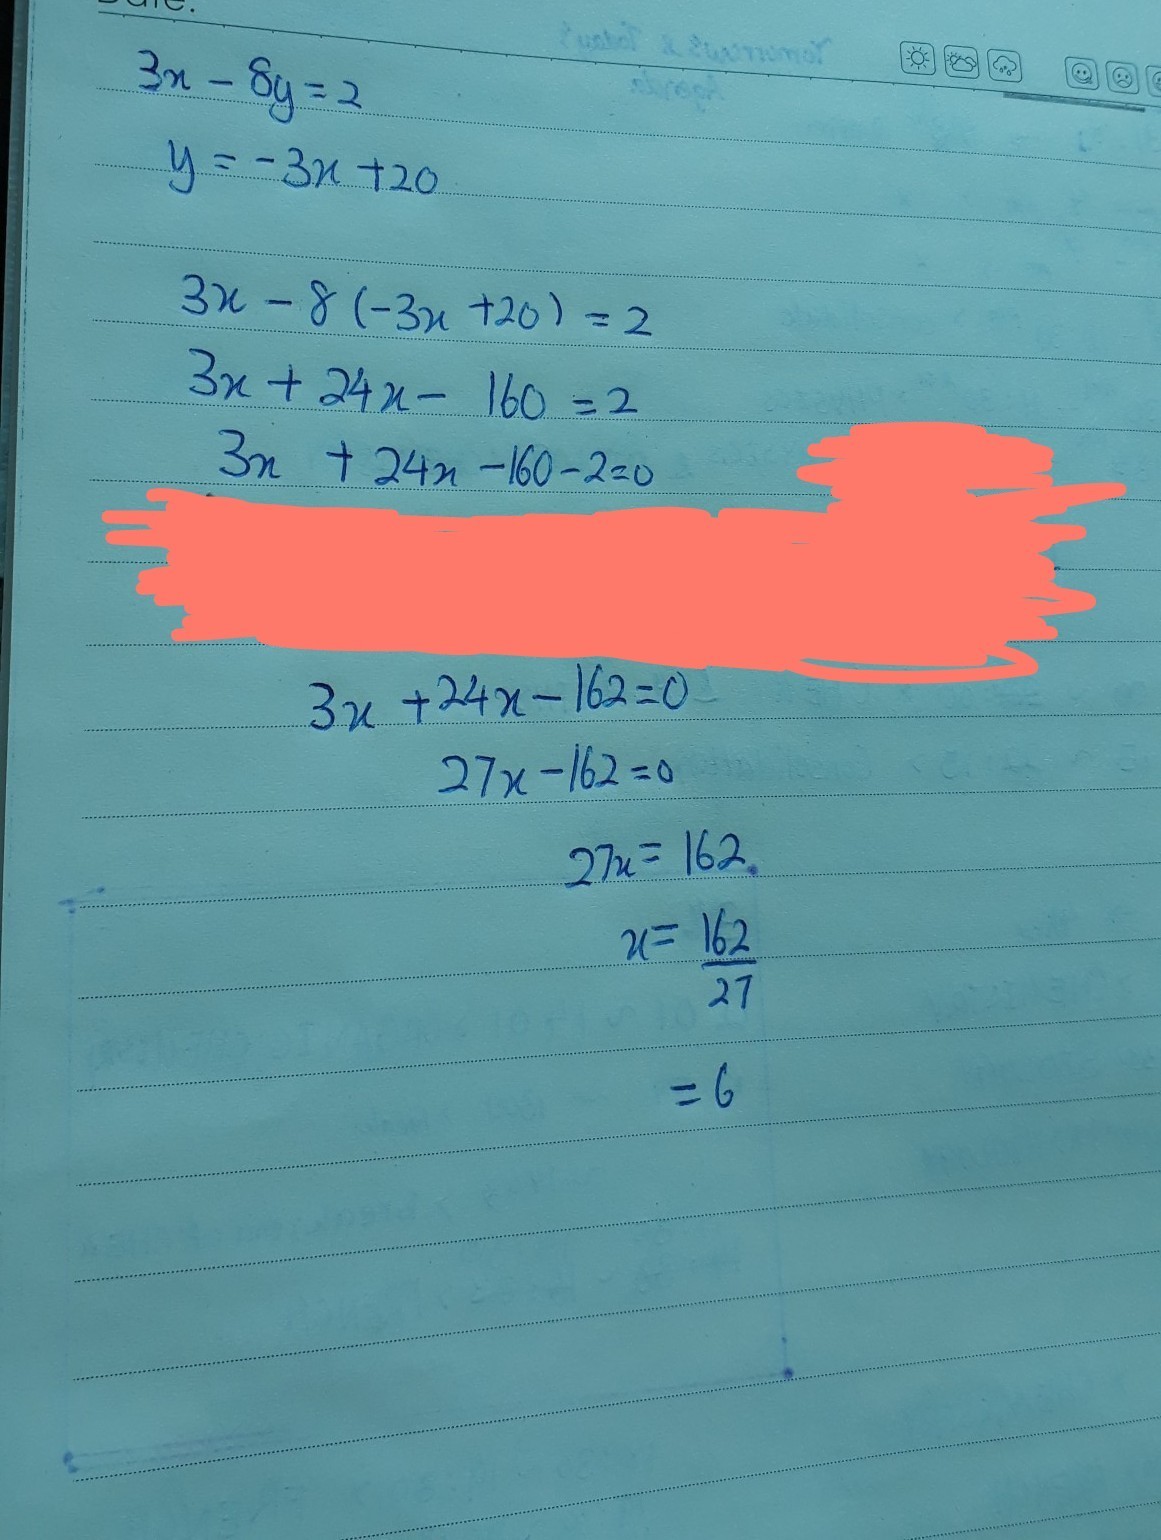 3x - 8y = 2
y = -3x + 20
3x - 8 (-3x + 20) = 2
3x + 24x - 160 = 2
3x + 24x - 160 - 2 = 0
3x + 24x - 162 = 0
27x - 162 = 0
27x = 162
x = 162
27
= 6